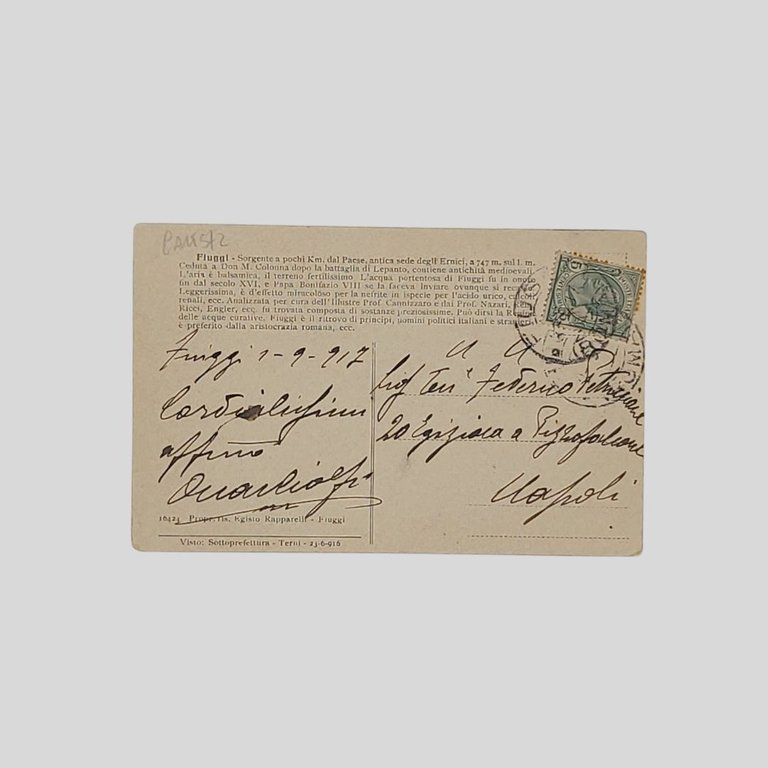 Fiuggi - Sorgente a pochi Km. dal Paese, antica sede degli Ernici, a 747 m. sul l. m.
Ceduta a Don M. Colonna dopo la battaglia di Lepanto, contiene antichità medioevali.
L'aria è balsamica, il terreno fertilissimo. L'acqua portentosa di Fiuggi fu in onore
fin dal secolo XVI, e Papa Bonifazio VIII se la faceva inviare ovunque si recasse.
Leggerissima, è d'effetto miracoloso per la nefrite in ispecie per l'acido urico, calcoli
renali, ecc. Analizzata per cura dell'illustre Prof. Cannizzaro e dai Prof. Nazari,
Ricci, Engler, ecc. fu trovata composta di sostanze preziosissime. Può dirsi la
delle acque curative. Fiuggi è il ritrovo di principi, uomini politici italiani e
è preferito dalla aristocrazia romana, ecc.
Fiuggi 1-9-917
Cordialissimi
affmo
Federico
20 Egiziaca a Pizzofalcone
Napoli
16424 Propr. ris. Egisto Rapparelli - Fiuggi
Visto: Sottoprefettura - Terni - 23-6-916